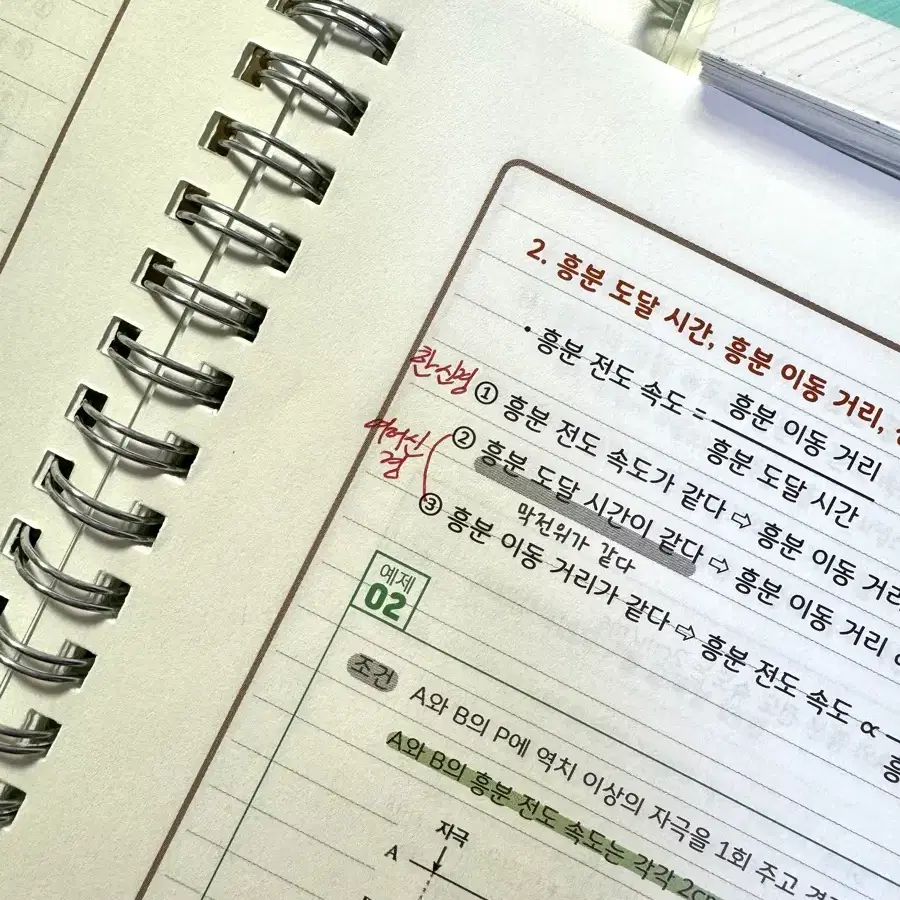 2. 흥분 도달 시간, 흥분 이동 거리,
• 흥분 전도 속도 = 흥분 이동 거리
흥분 도달 시간
한 신경 ① 흥분 전도 속도가 같다 ⇨ 흥분 이동 거리
여러 신경 ② 흥분 도달 시간이 같다 ⇨ 흥분 이동 거리
막전위가 같다
③ 흥분 이동 거리가 같다 ⇨ 흥분 전도 속도 ∝
흥
예제
02
조건 A와 B의 P에 역치 이상의 자극을 1회 주고
A와 B의 흥분 전도 속도는 각각 2cm
자극
A